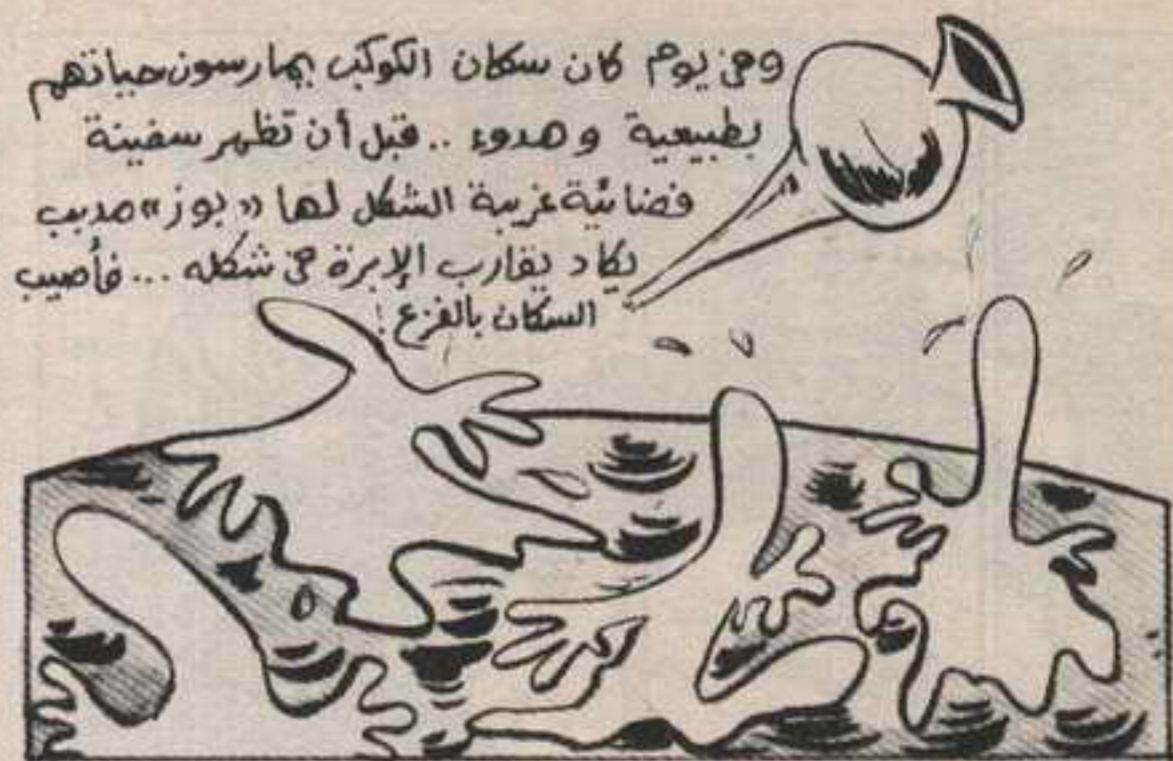 وفى يوم كان سكان الكوكب يمارسون حياتهم
بطبيعية وهدوء .. قبل أن تظهر سفينة
فضائية غريبة الشكل لها «بوز» مدبب
يكاد يقارب الإبرة فى شكله ... فأصيب
السكان بالفزع !